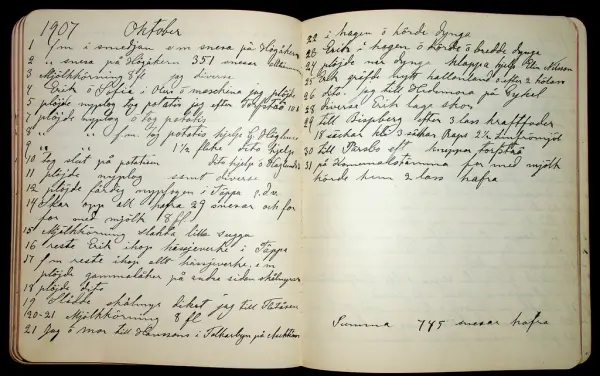 1907 Oktober
1 f m i smedjan e m snesa på Högåkern
2 " snesa på Högåkern 351 snesar
3 Mjölkkörning 8 fl jag diverse
4 Erik o Sofia i Olers o maschina jag plöjde
5 plöjde nyplog tog potatis jag efter Torfströ 101
7 plöjde nyplog o tog potatis
8 " " f m tog potatis hjelp E Höglund
9 " " 1½ fläke dito hjelp
10 Tog slut på potatisen dito hjelp o Höglunds
11 plöjde nyplog samt diverse
12 plöjde färdig nyplogen i Täppa o.d.v.
14 Skar opp allt hafra 29 snesar och for
for med mjölk 8 fl
15 Mjölkkörning lilla sugga
16 reste Erik ihop hässjeverke i Täppa
17 f m reste ihop allt hässjeverke. e m
plöjde gammalåker på andre siden skålmyren
18 plöjde dito
19 skålmyr diket, jag till
20-21 Mjölkkörning 8 fl
21 Jag o mor till Hanssons i Tolkarbyn på Auktion
22 i hagen o körde dynga
23 Erik i hagen o körde o bredde dynga
24 plöjde ner dynga hjelp Elin Nilsson
25 Erik gräfde nytt hallonland o efter 2 hölass
26 dito. jag till Hedemora på Cykel
28 diverse Erik laga skor
29 till Bispberg efter 3 lass kraftfoder
18 säckar kli 3 säckar Raps 2½ Linfrömjöl
30 till Särsbo eft torfströ
31 på Komunalstämma for med mjölk
körde hem 2 lass hafra
Summa 745 snesar hafra